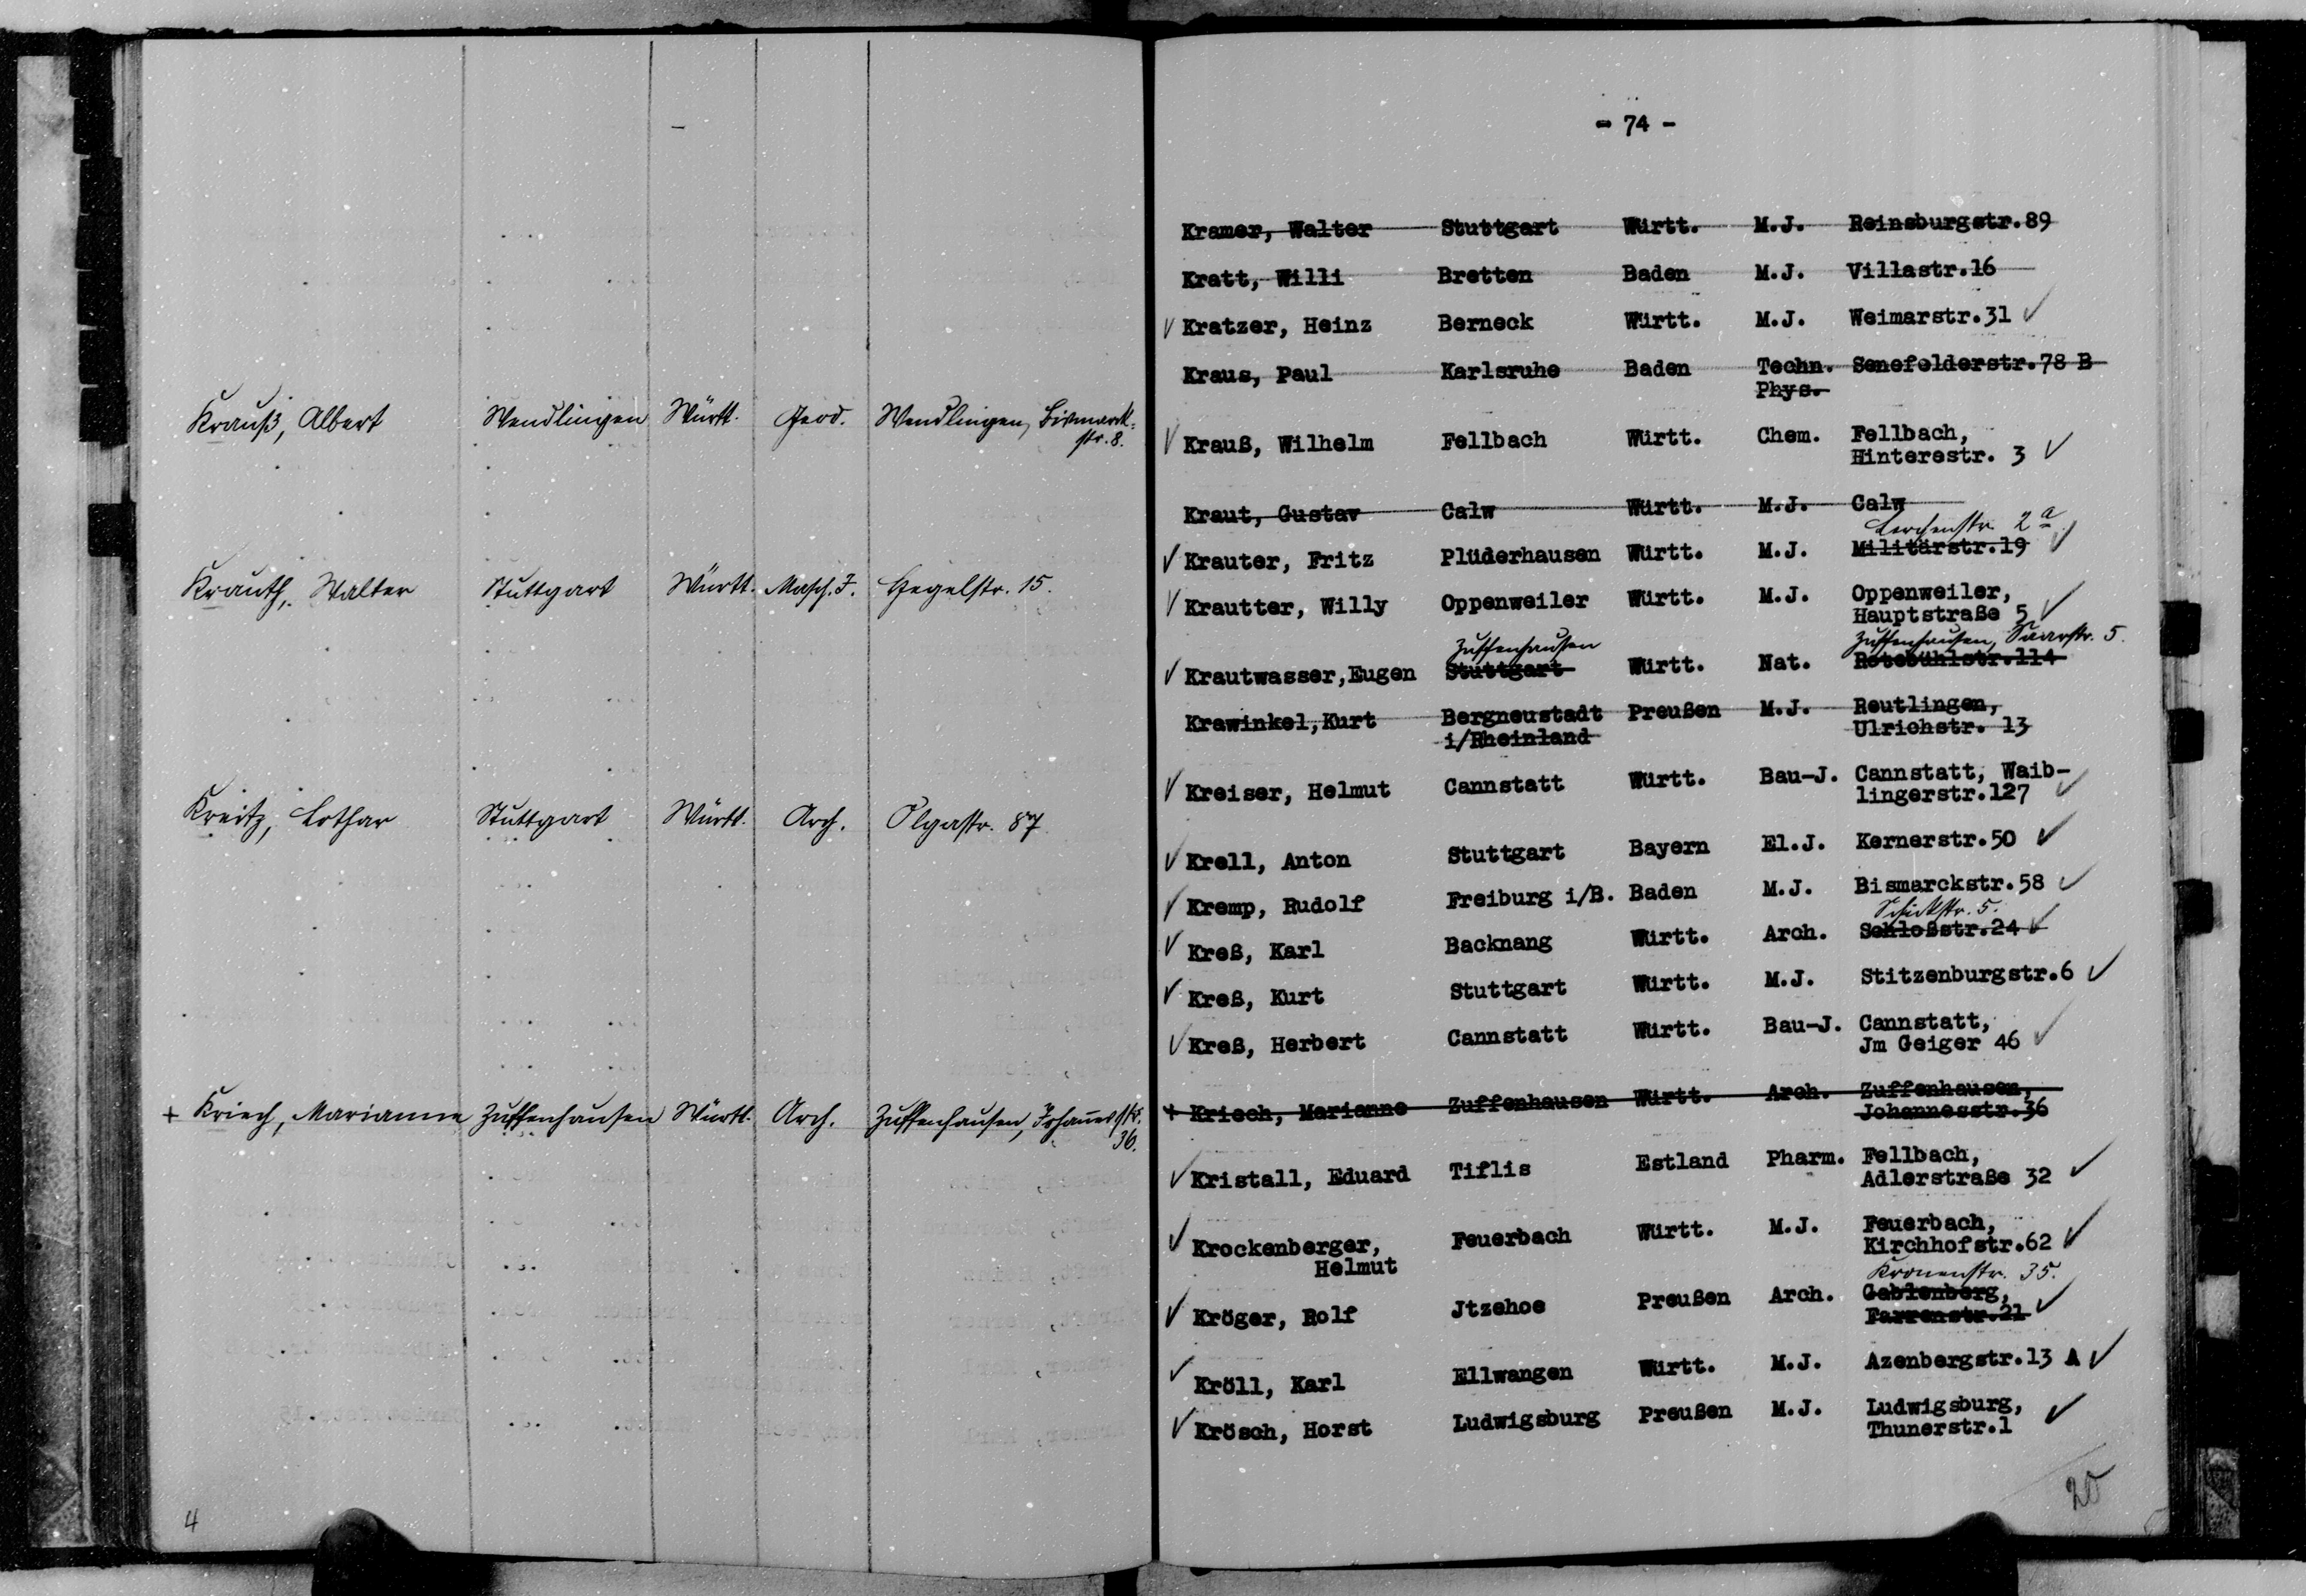 Krauß, Albert Wendlingen Württ. Geod. Wendlingen, Bismarck-
str. 8.
Krauth, Walter Stuttgart Württ. Masch. I. Hegelstr. 15.
Kreitz, Lothar Stuttgart Württ. Arch. Olgastr. 87
+ Kriech, Marianne Zuffenhausen Württ. Arch. Zuffenhausen, Johannesstr.
36.
4
- 74 -
Kramer, Walter Stuttgart Württ. M.J. Reinsburgstr.89
Kratt, Willi Bretten Baden M.J. Villastr.16
✓ Kratzer, Heinz Berneck Württ. M.J. Weimarstr.31 ✓
Kraus, Paul Karlsruhe Baden Techn. Senefelderstr.78 B
Phys.
✓ Krauß, Wilhelm Fellbach Württ. Chem. Fellbach,
Hinterestr. 3 ✓
Kraut, Gustav Calw Württ. M.J. Calw
Lerchenstr. 2a
✓ Krauter, Fritz Plüderhausen Württ. M.J. Militärstr.19 ✓
✓ Krautter, Willy Oppenweiler Württ. M.J. Oppenweiler,
Hauptstraße 5 ✓
Zuffenhausen Zuffenhausen, Saarstr. 5.
✓ Krautwasser,Eugen Stuttgart Württ. Nat. Rotebühlstr.114
Krawinkel,Kurt Bergneustadt Preußen M.J. Reutlingen,
i/Rheinland Ulrichstr. 13
✓ Kreiser, Helmut Cannstatt Württ. Bau-J. Cannstatt, Waib-
lingerstr.127 ✓
✓ Krell, Anton Stuttgart Bayern El.J. Kernerstr.50 ✓
✓ Kremp, Rudolf Freiburg i/B. Baden M.J. Bismarckstr.58 ✓
Schickstr. 5.
✓ Kreß, Karl Backnang Württ. Arch. Schloßstr.24 ✓
✓ Kreß, Kurt Stuttgart Württ. M.J. Stitzenburgstr.6 ✓
✓ Kreß, Herbert Cannstatt Württ. Bau-J. Cannstatt,
Jm Geiger 46 ✓
+ Kriech, Marianne Zuffenhausen Württ. Arch. Zuffenhausen,
Johannesstr.36
✓ Kristall, Eduard Tiflis Estland Pharm. Fellbach,
Adlerstraße 32 ✓
✓ Krockenberger, Feuerbach Württ. M.J. Feuerbach,
Helmut Kirchhofstr.62 ✓
Kronenstr. 35.
✓ Kröger, Rolf Jtzehoe Preußen Arch. Gablenberg,
Farrenstr.21 ✓
✓ Kröll, Karl Ellwangen Württ. M.J. Azenbergstr.13 A ✓
✓ Krösch, Horst Ludwigsburg Preußen M.J. Ludwigsburg,
Thunerstr.1 ✓
20